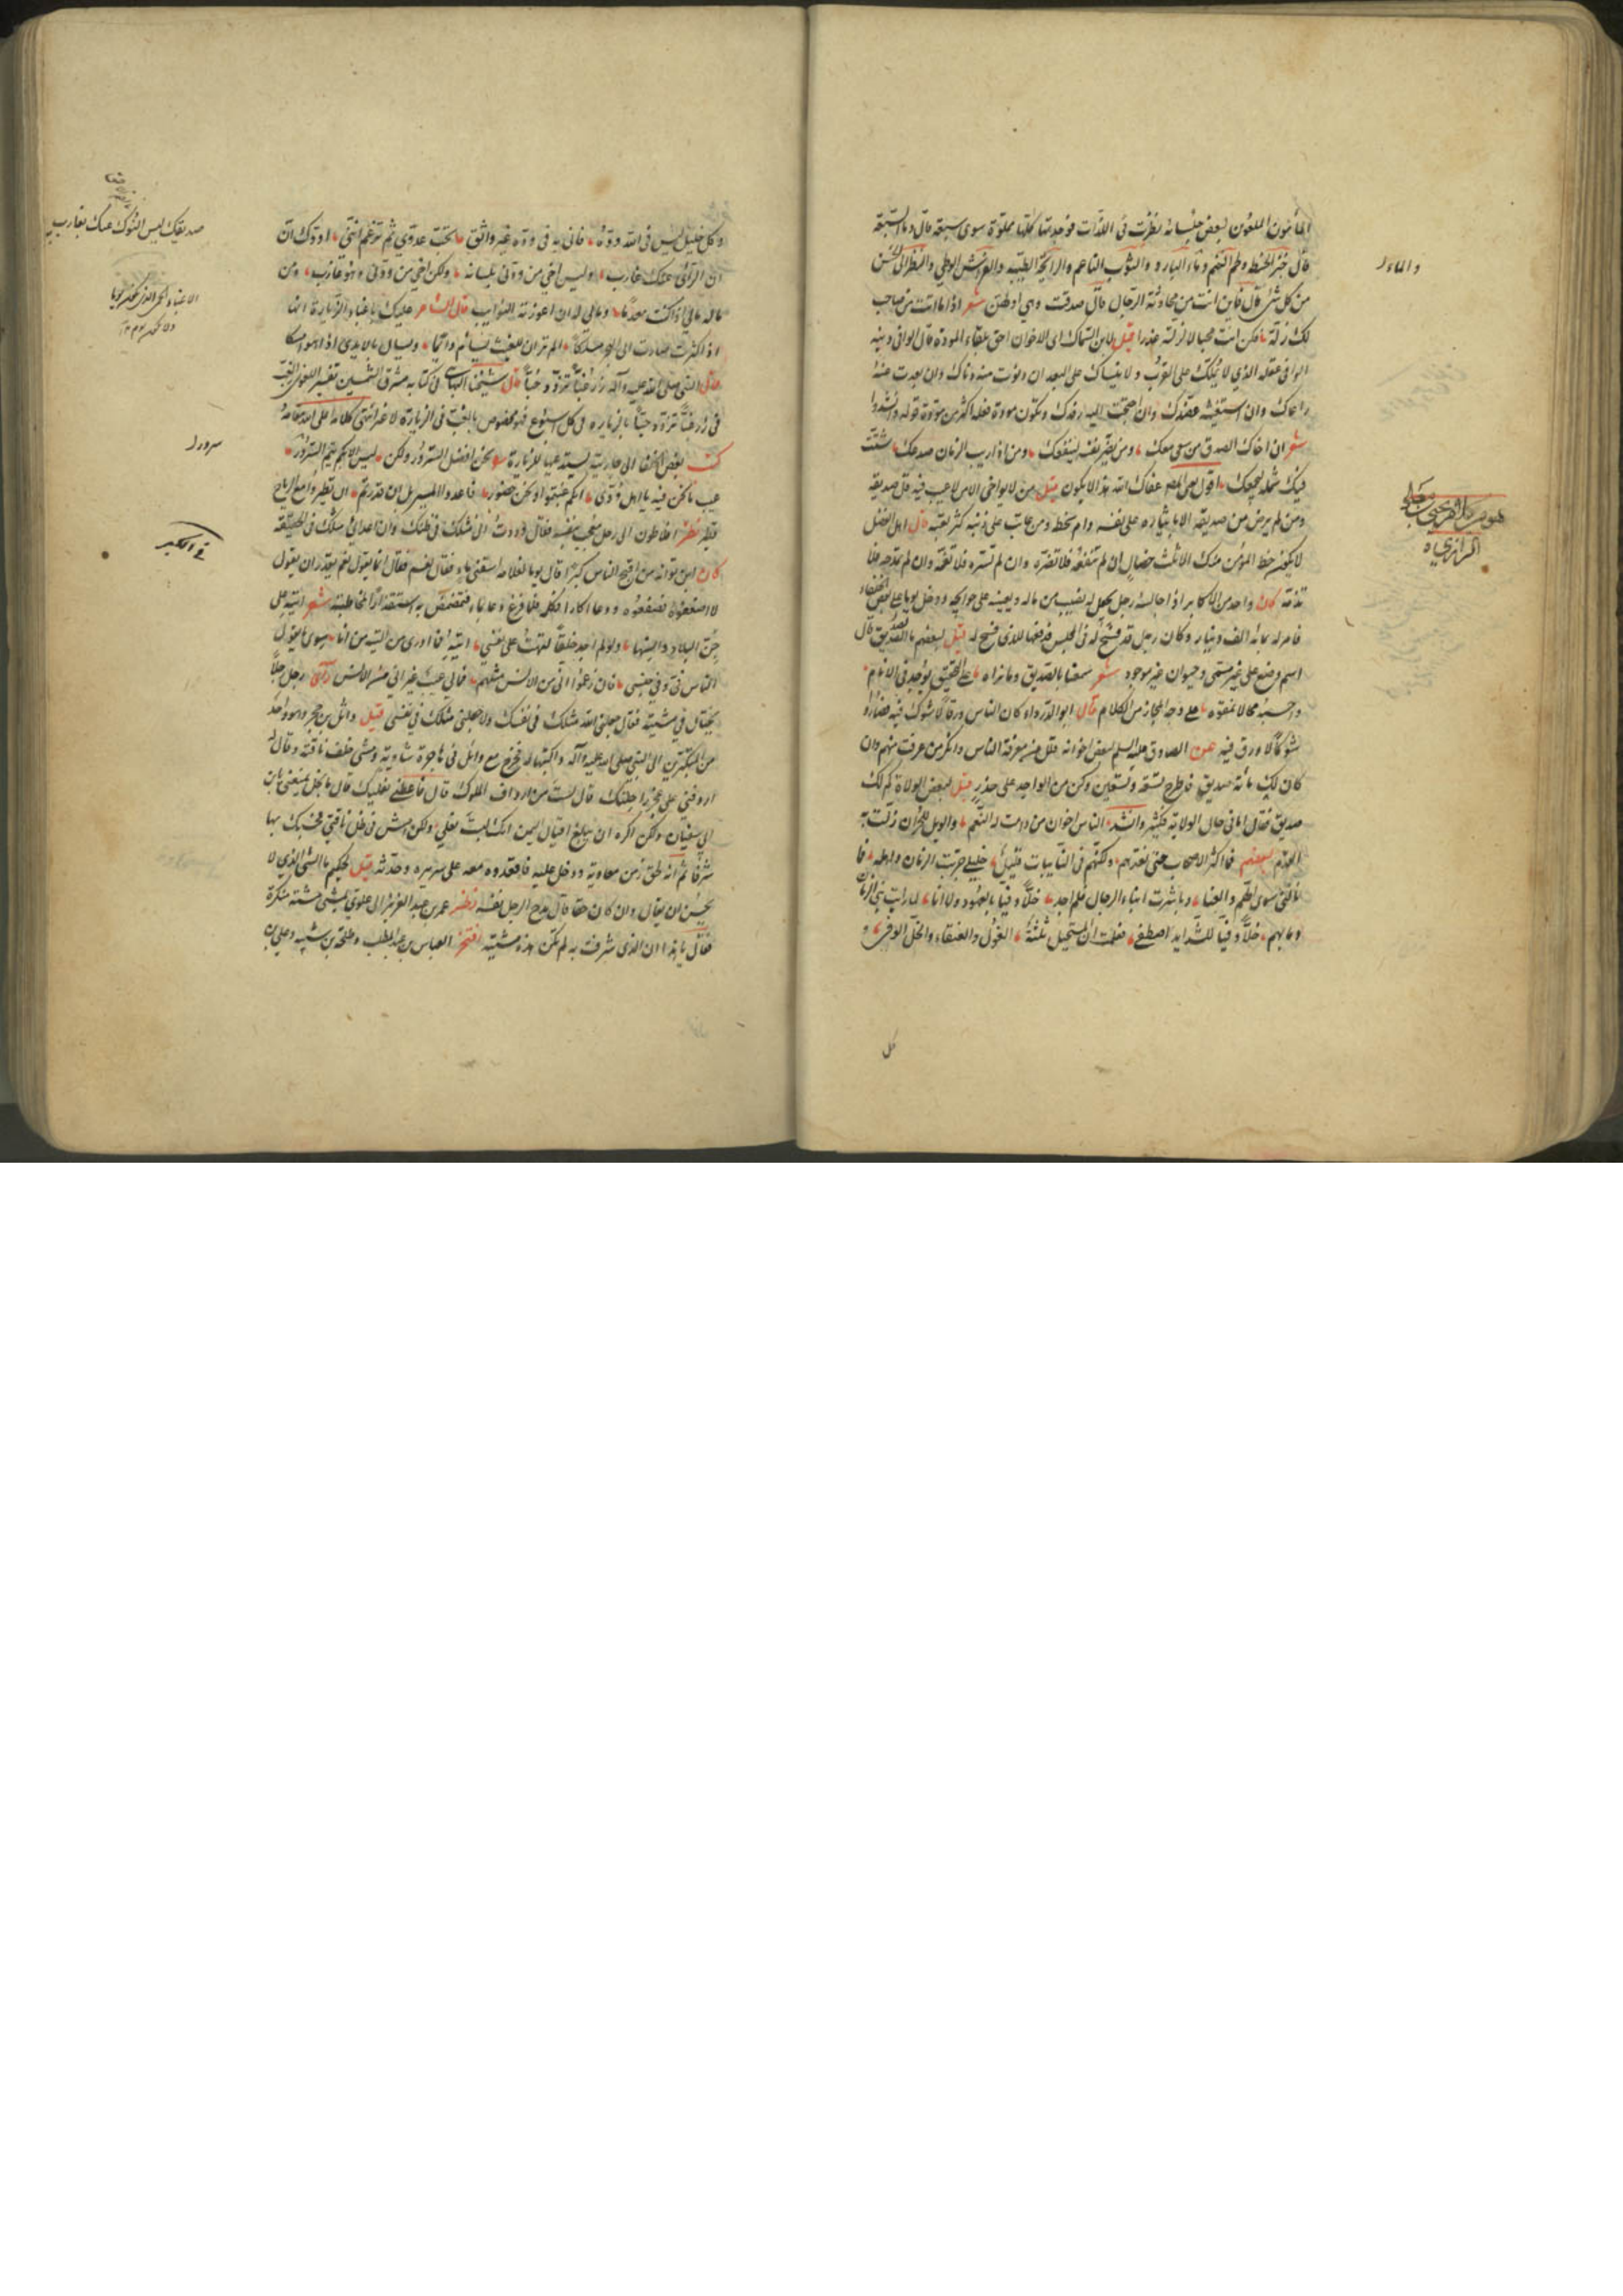 المأمون الملعون لبعض جلسائه نظرت في اللذات فوجدتها كلها مملوة سوى سبعة قال وما السبعة
قال خبز الحنطة ولحم الغنم وماء البارد والثوب الناعم والرائحة الطيبة والفرش الوطي والنظر الى الحسن
من كل شئ قال فاين انت من محادثة الرجال قال صدقت وهي اولهن شعر اذا ما اتت من صاحب
لك زلة فكن انت محتالا لزلته عذرا قيل لابن السماك اى الاخوان احق ببقاء المودة قال الوافر دينه
الوافي عقله الذي لا يملك على القرب ولا ينساك على البعد ان دنوت منه دناك وان بعدت عنه
راعاك وان استعنته عضدك وان احتجت اليه رفدك وتكون مودة فعله اكثر من مودة قوله وانشدوا
شعر ان اخاك الصدق من يسعى معك ومن يضر نفسه لينفعك ومن اذا ريب الزمان صدعك شتت
فيك شمله ليجمعك اقول عفاك الله هذا لا يكون قيل من لا يواخي الا من لا عيب فيه قل صديقه
ومن لم يرض من صديقه الا بايثاره على نفسه دام سخطه ومن عاتب على ذنب كثر تعبه قال اهل الفضل
ليكن حظ المؤمن منك الا ثلث خصال ان لم تنفعه فلا تضره وان لم تسره فلا تغمه وان لم تمدحه فلا
تذمه كان واحد من الاكابر اذا جالسه رجل يجعل له نصيب من ماله ويعينه على حوائجه ودخل يوما على بعض الخلفاء
فامر له بمائة الف دينار وكان رجل قد فسح له في المجلس فدفعها للذى فسح له قيل لبعضهم ما الصديق قال
اسم وضع على غير مسمى وحيوان غير موجود شعر سمعنا بالصديق وما نراه على التحقيق يوجد في الانام
واحسبه محالا نمقوه على وجه المجاز من الكلام قال ابو الدرداء كان الناس ورقا لا شوك فيه فصاروا
شوكا لا ورق فيه عن الصادق عليه السلم لبعض اخوانه قلل من معرفة الناس وانكر من عرفت منهم وان
كان لك مائة صديق فاطرح تسعة وتسعين وكن من الواحد على حذر قيل لبعض الولاة كم لك
صديق فقال اما في حال الولاية فكثير وانشد الناس اخوان من دامت له النعم والويل للمرء ان زلت به
القدم لبعضهم فما اكثر الاصحاب حين نعدهم ولكنهم في النائبات قليل خليلي جربت الزمان واهله فما
نالني سوى الهم والعنا وعاشرت ابناء الرجال فلم اجد خلا وفيا بالعهود ولا انا لما رايت بني الزمان
وما بهم خل وفي للشدايد اصطفي فعلمت ان المستحيل ثلثة الغول والعنقاء والخل الوفي و
كل
والماء
وكل خليل ليس في الله وده فاني به في وده غير واثق تحب عدوي ثم تزعم انني اودك ان
ان الراى عنك عازب وليس اخي من ودني بلسانه ولكن اخي من ودني وهو غائب ومن
ماله مالي اذا كنت معدما ومالي له ان اعوزته النوائب قال الشاعر عليك باغباب الزيارة انها
اذا كثرت صارت الى الهجر مسلكا الم تر ان الغيث يسأم دائما ويسأل بالايدى اذا هو امسكا
قال النبي صلى الله عليه وآله زر غبا تزدد حبا قال شيخنا البهائي في كتابه مشرق الشمسين تفسير اللغوى الغب
في زر غبا تزدد حبا بالزيارة في كل اسبوع فهو مخصوص بالغب في الزيارة لا غير انتهى كلامه اعلى الله مقامه
كتب بعض الخلفا الى جارية يستدعيها للزيارة نحن افضل السرور ولكن ليس الا بكم يتم السرور
عيب ما نحن فيه يا اهل ودى انكم غبتموا ونحن حضور فاعدوا المسير بل ان قدرتم ان تطيروا مع الرياح
فطيروا نظر افلاطون الى رجل معجب بنفسه فقال وددت انى مثلك في ظنك وان اعدائي مثلك في الحقيقة
كان ابن ثوابه من اقبح الناس كبرا قال يوما لغلامه اسقني ماء فقال نعم فقال انما يقول نعم من يقدر ان يقول
لا اصفعوه فصفعوه ودعا اكارا فكلمه فلما فرغ دعا بماء فتمضمض به استقذارا لمخاطبته شعر اتيه على
جن البلاد وانسها ولو لم اجد خلقا لتهت على نفسي اتيه فما ادرى من التيه من انا سوى ما يقول
الناس في وفي جنسي فان زعموا انى من الانس مثلهم فمالي عيب غير اني من الانس راى رجل رجلا
يختال في مشيته فقال جعلني الله مثلك في نفسك ولا جعلني مثلك في نفسي قيل وائل بن حجر وهو احد
من المتكبرين الى النبي صلى الله عليه وآله فخرج مع وائل في هاجرة شاوية ومشى خلف ناقته وقال له
اردفني على عجز راحلتك قال لست من ارداف الملوك قال فاعطني نعليك قال ما بخل يمنعني يابن
ابي سفيان ولكن اكره ان يبلغ اقيال اليمن انك لبست نعلي ولكن امش في ظل ناقتي فحسبك بها
شرفا ثم انه لحق زمن معاوية ودخل عليه فاقعده معه على سريره وحدثه قيل لحكيم ما الشئ الذي لا
يحسن ان يقال وان كان حقا قال مدح الرجل نفسه نظر عمر بن عبد العزيز الى علوى يمشي مشية منكرة
فقال يا هذا ان الذى شرفت به لم تكن هذه مشيته افتخر العباس بن عبد المطلب وطلحة بن شيبه وعلي بن
صديقك ليس النوك عنك بعازب
سرور
في الكبر